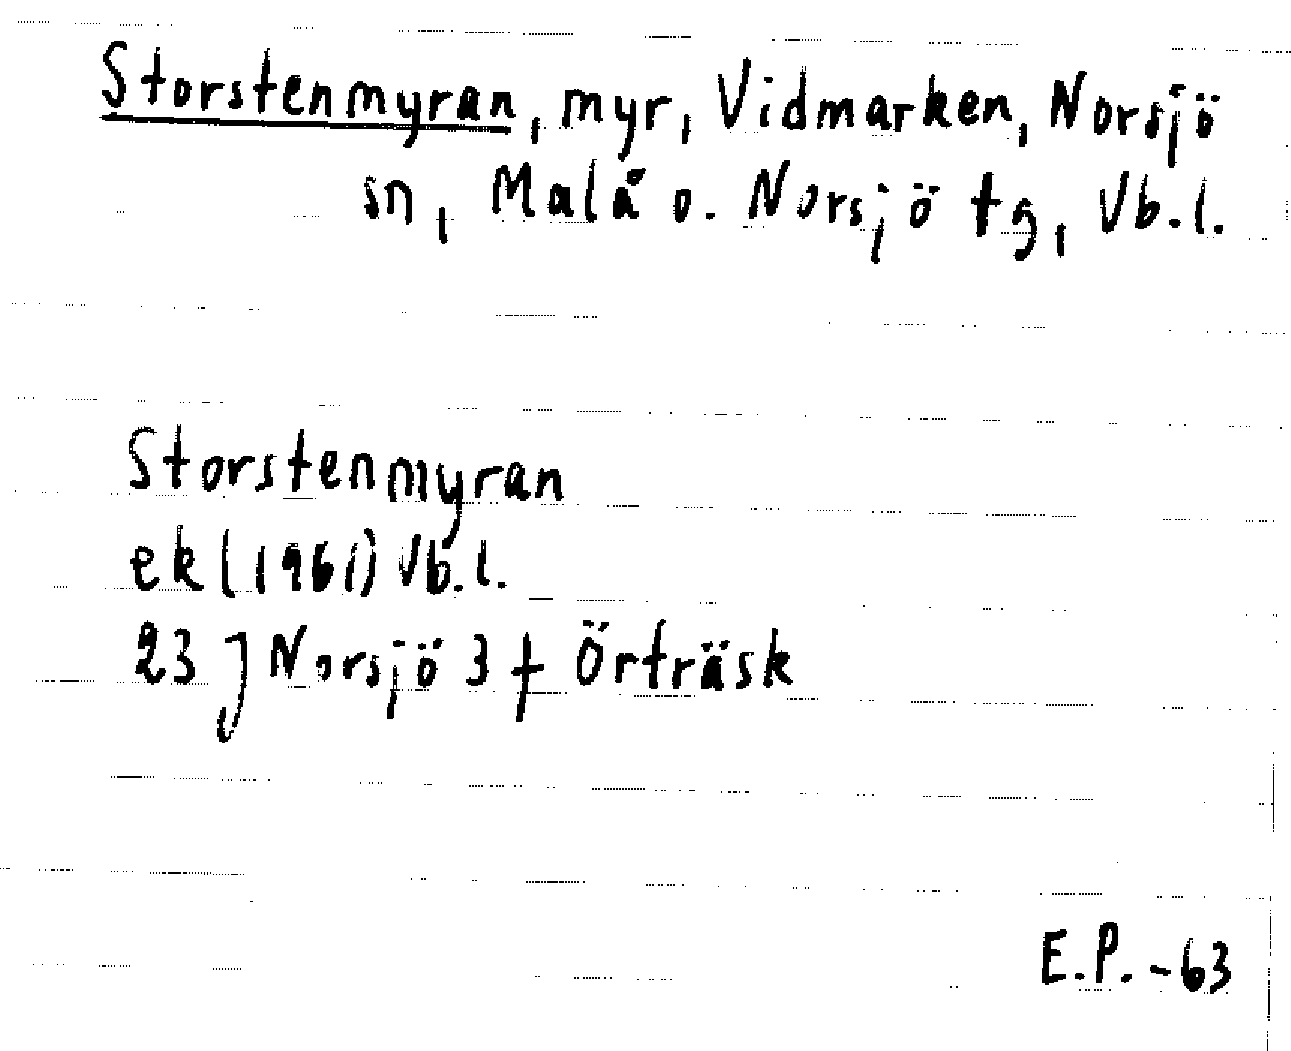 Storstenmyran, myr, Vidmarken, Norsjö
sn, Malå o. Norsjö tg, Vb.l.
Storstenmyran
ek (1961) Vb.l.
23 J Norsjö 3 f Örträsk
E.P. -63